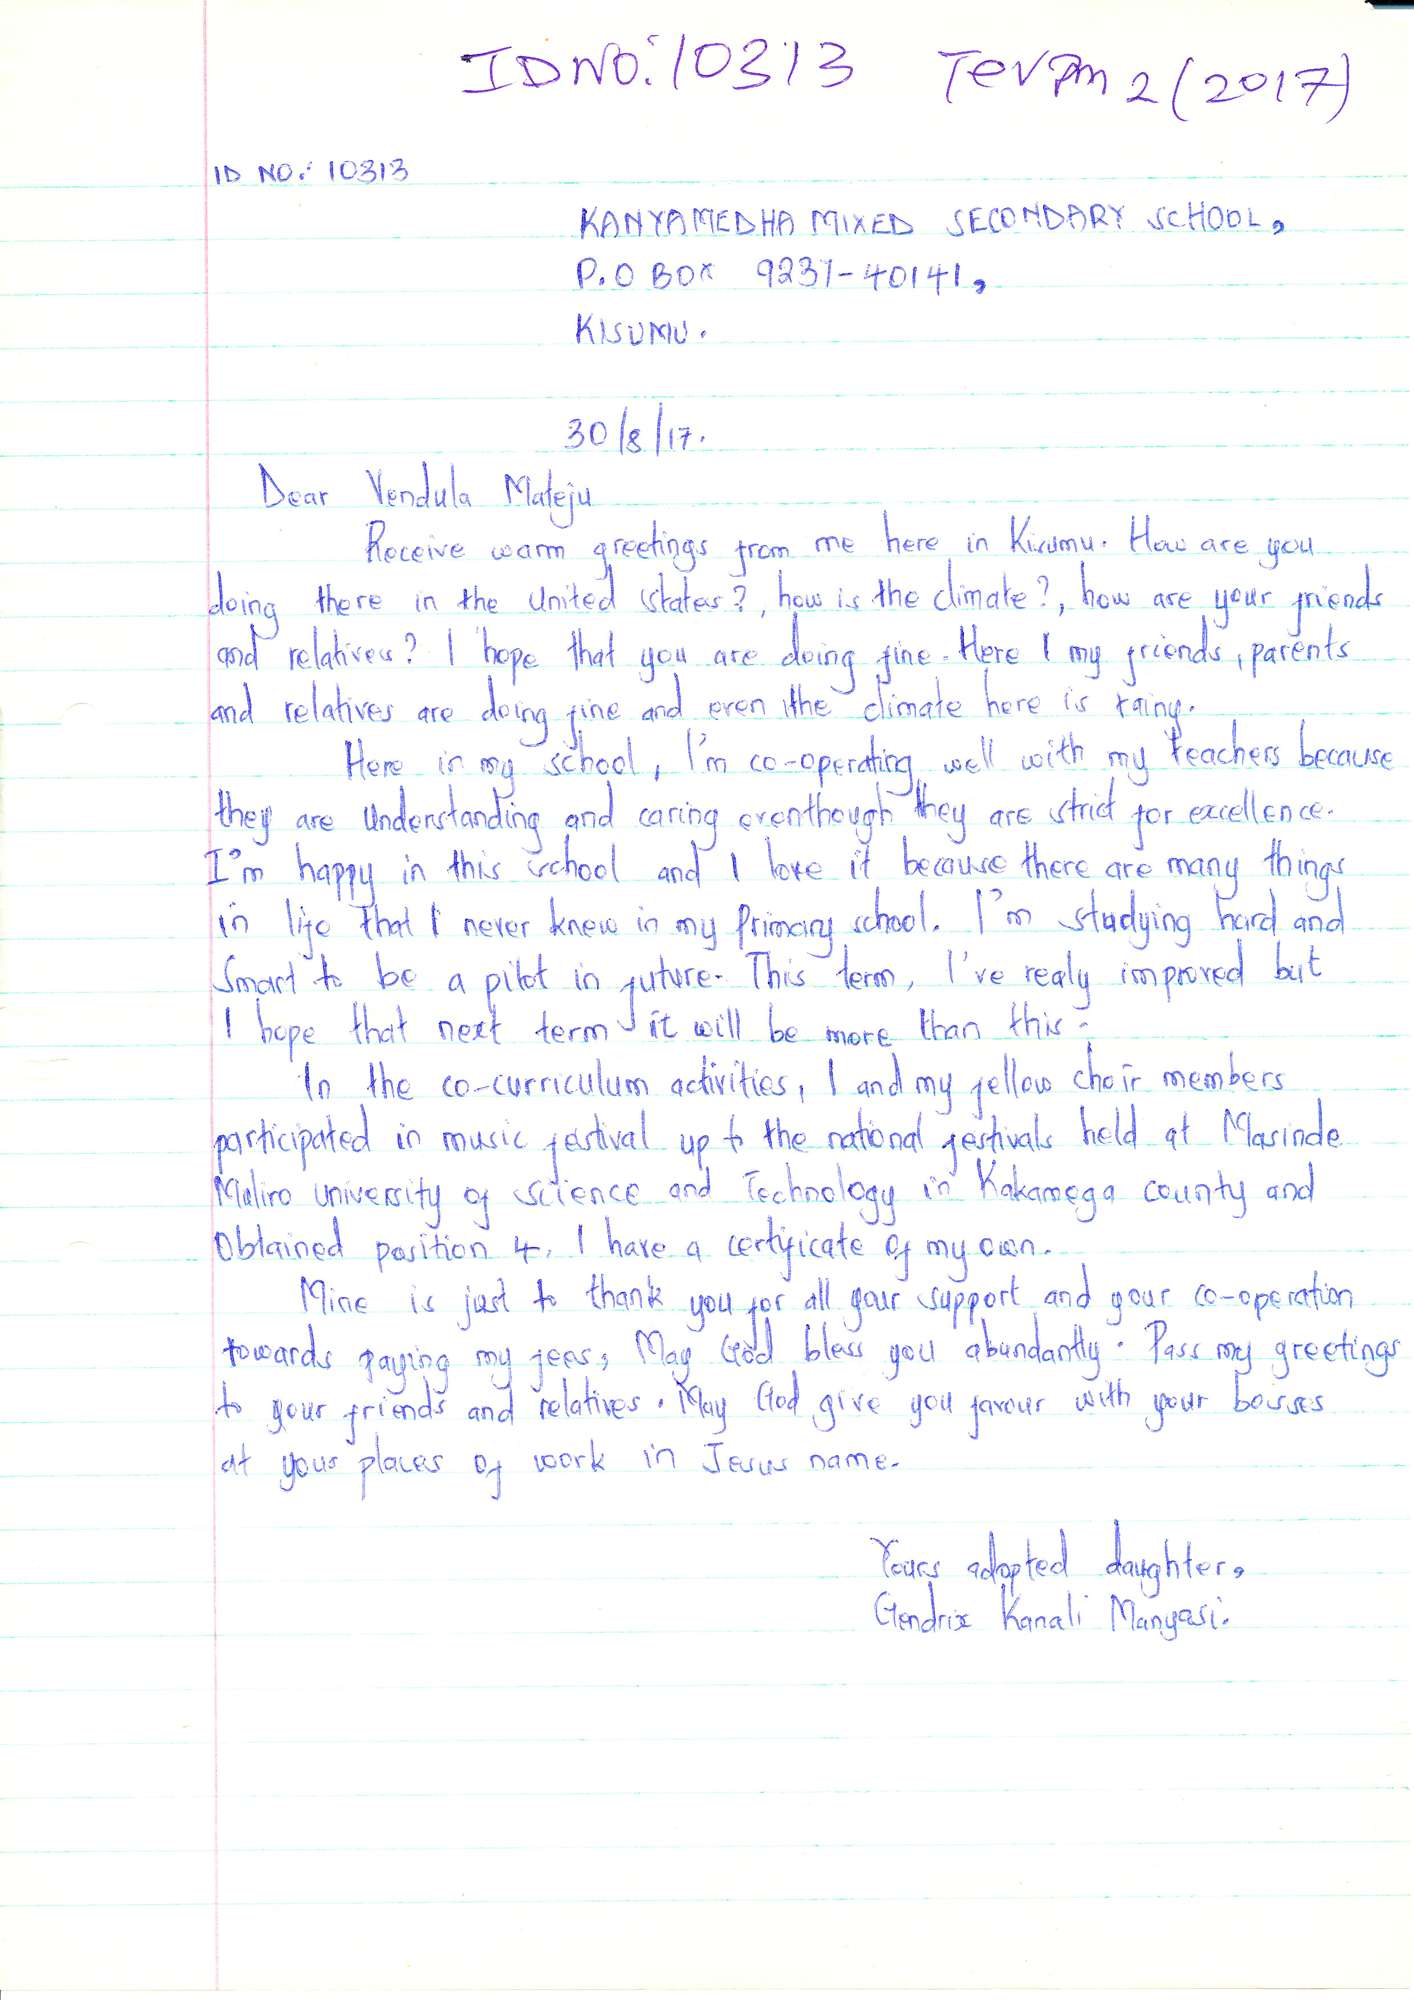 ID NO: 10313 Term 2 (2017)
ID NO.: 10313
KANYAMEDHA MIXED SECONDARY SCHOOL,
P.O BOX 9237-40141,
KISUMU.
30/8/17.
Dear Vendula Mateju
Receive warm greetings from me here in Kisumu. How are you
doing there in the United States?, how is the climate?, how are your friends
and relatives? I hope that you are doing fine. Here I my friends, parents
and relatives are doing fine and even the climate here is rainy.
Here in my school, I'm co-operating well with my teachers because
they are understanding and caring eventhough they are strict for excellence.
I'm happy in this school and I love it because there are many things
in life that I never knew in my Primary school. I'm studying hard and
Smart to be a pilot in future. This term, I've realy improved but
I hope that next term it will be more than this.
In the co-curriculum activities, I and my fellow choir members
participated in music festival up to the national festivals held at Masinde
Muliro university of science and Technology in Kakamega county and
Obtained position 4. I have a certificate of my own.
Mine is just to thank you for all your support and your co-operation
towards paying my fees, May God bless you abundantly. Pass my greetings
to your friends and relatives. May God give you favour with your bosses
at your places of work in Jesus name.
Yours adopted daughter,
Gendrix Kanali Manyasi.